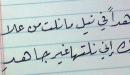 هداً في نيل ما نلت من علا
إني نلتها غير جاهد